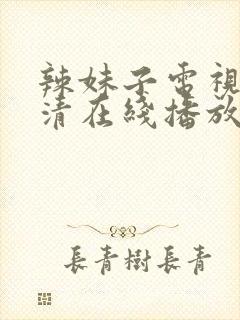 辣妹子電視
清在綫播放
長青樹長青